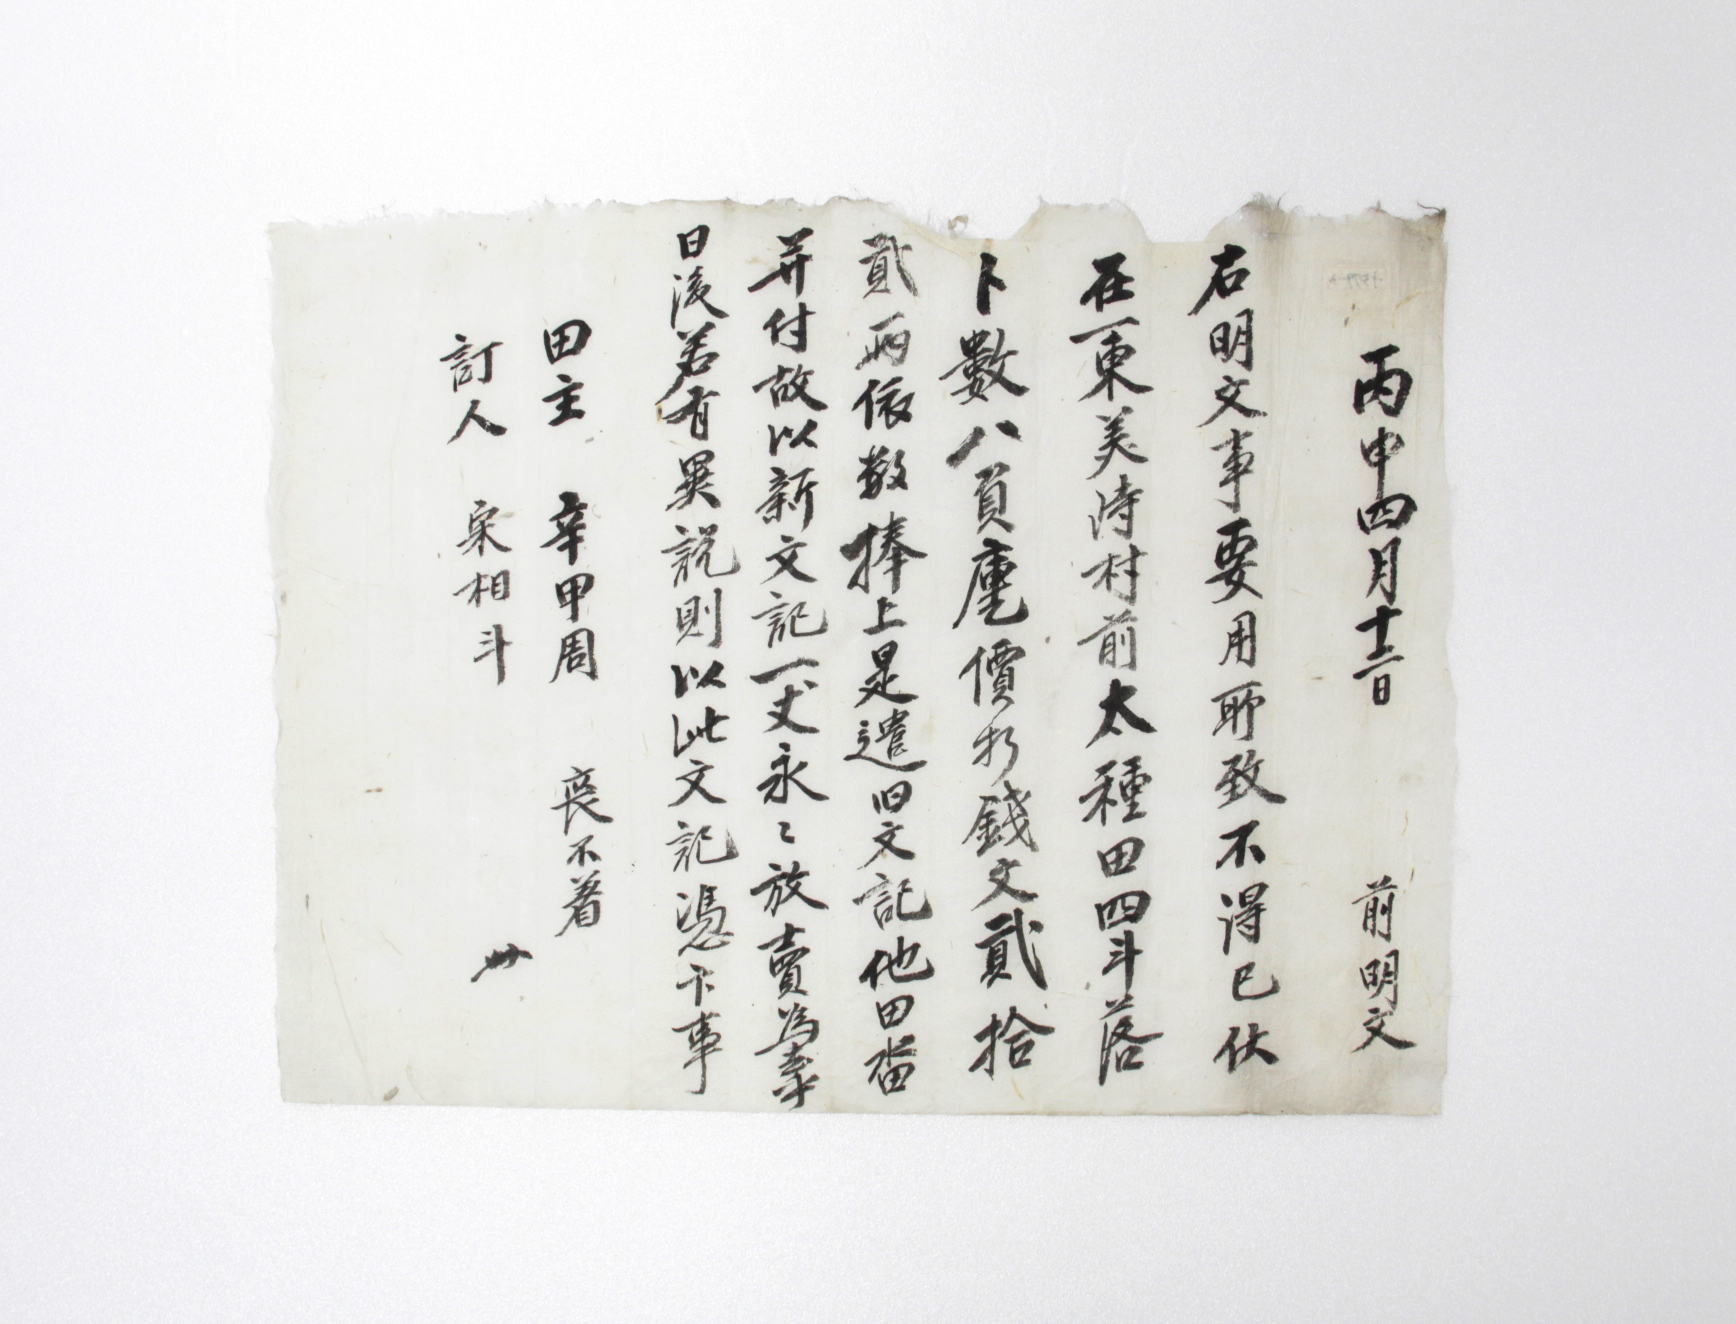 丙申四月十二日 前明文
右明文事要用所致不得已伏
在東美湾村前太種田四斗落
卜數八負庫價折錢文貳拾
貳兩依數捧上是遣旧文記他田畓
并付故以新文記一丈永〻放賣為去乎
日後若有異説則以此文記憑卞事
田主 辛甲周 喪不着
訂人 宋相斗